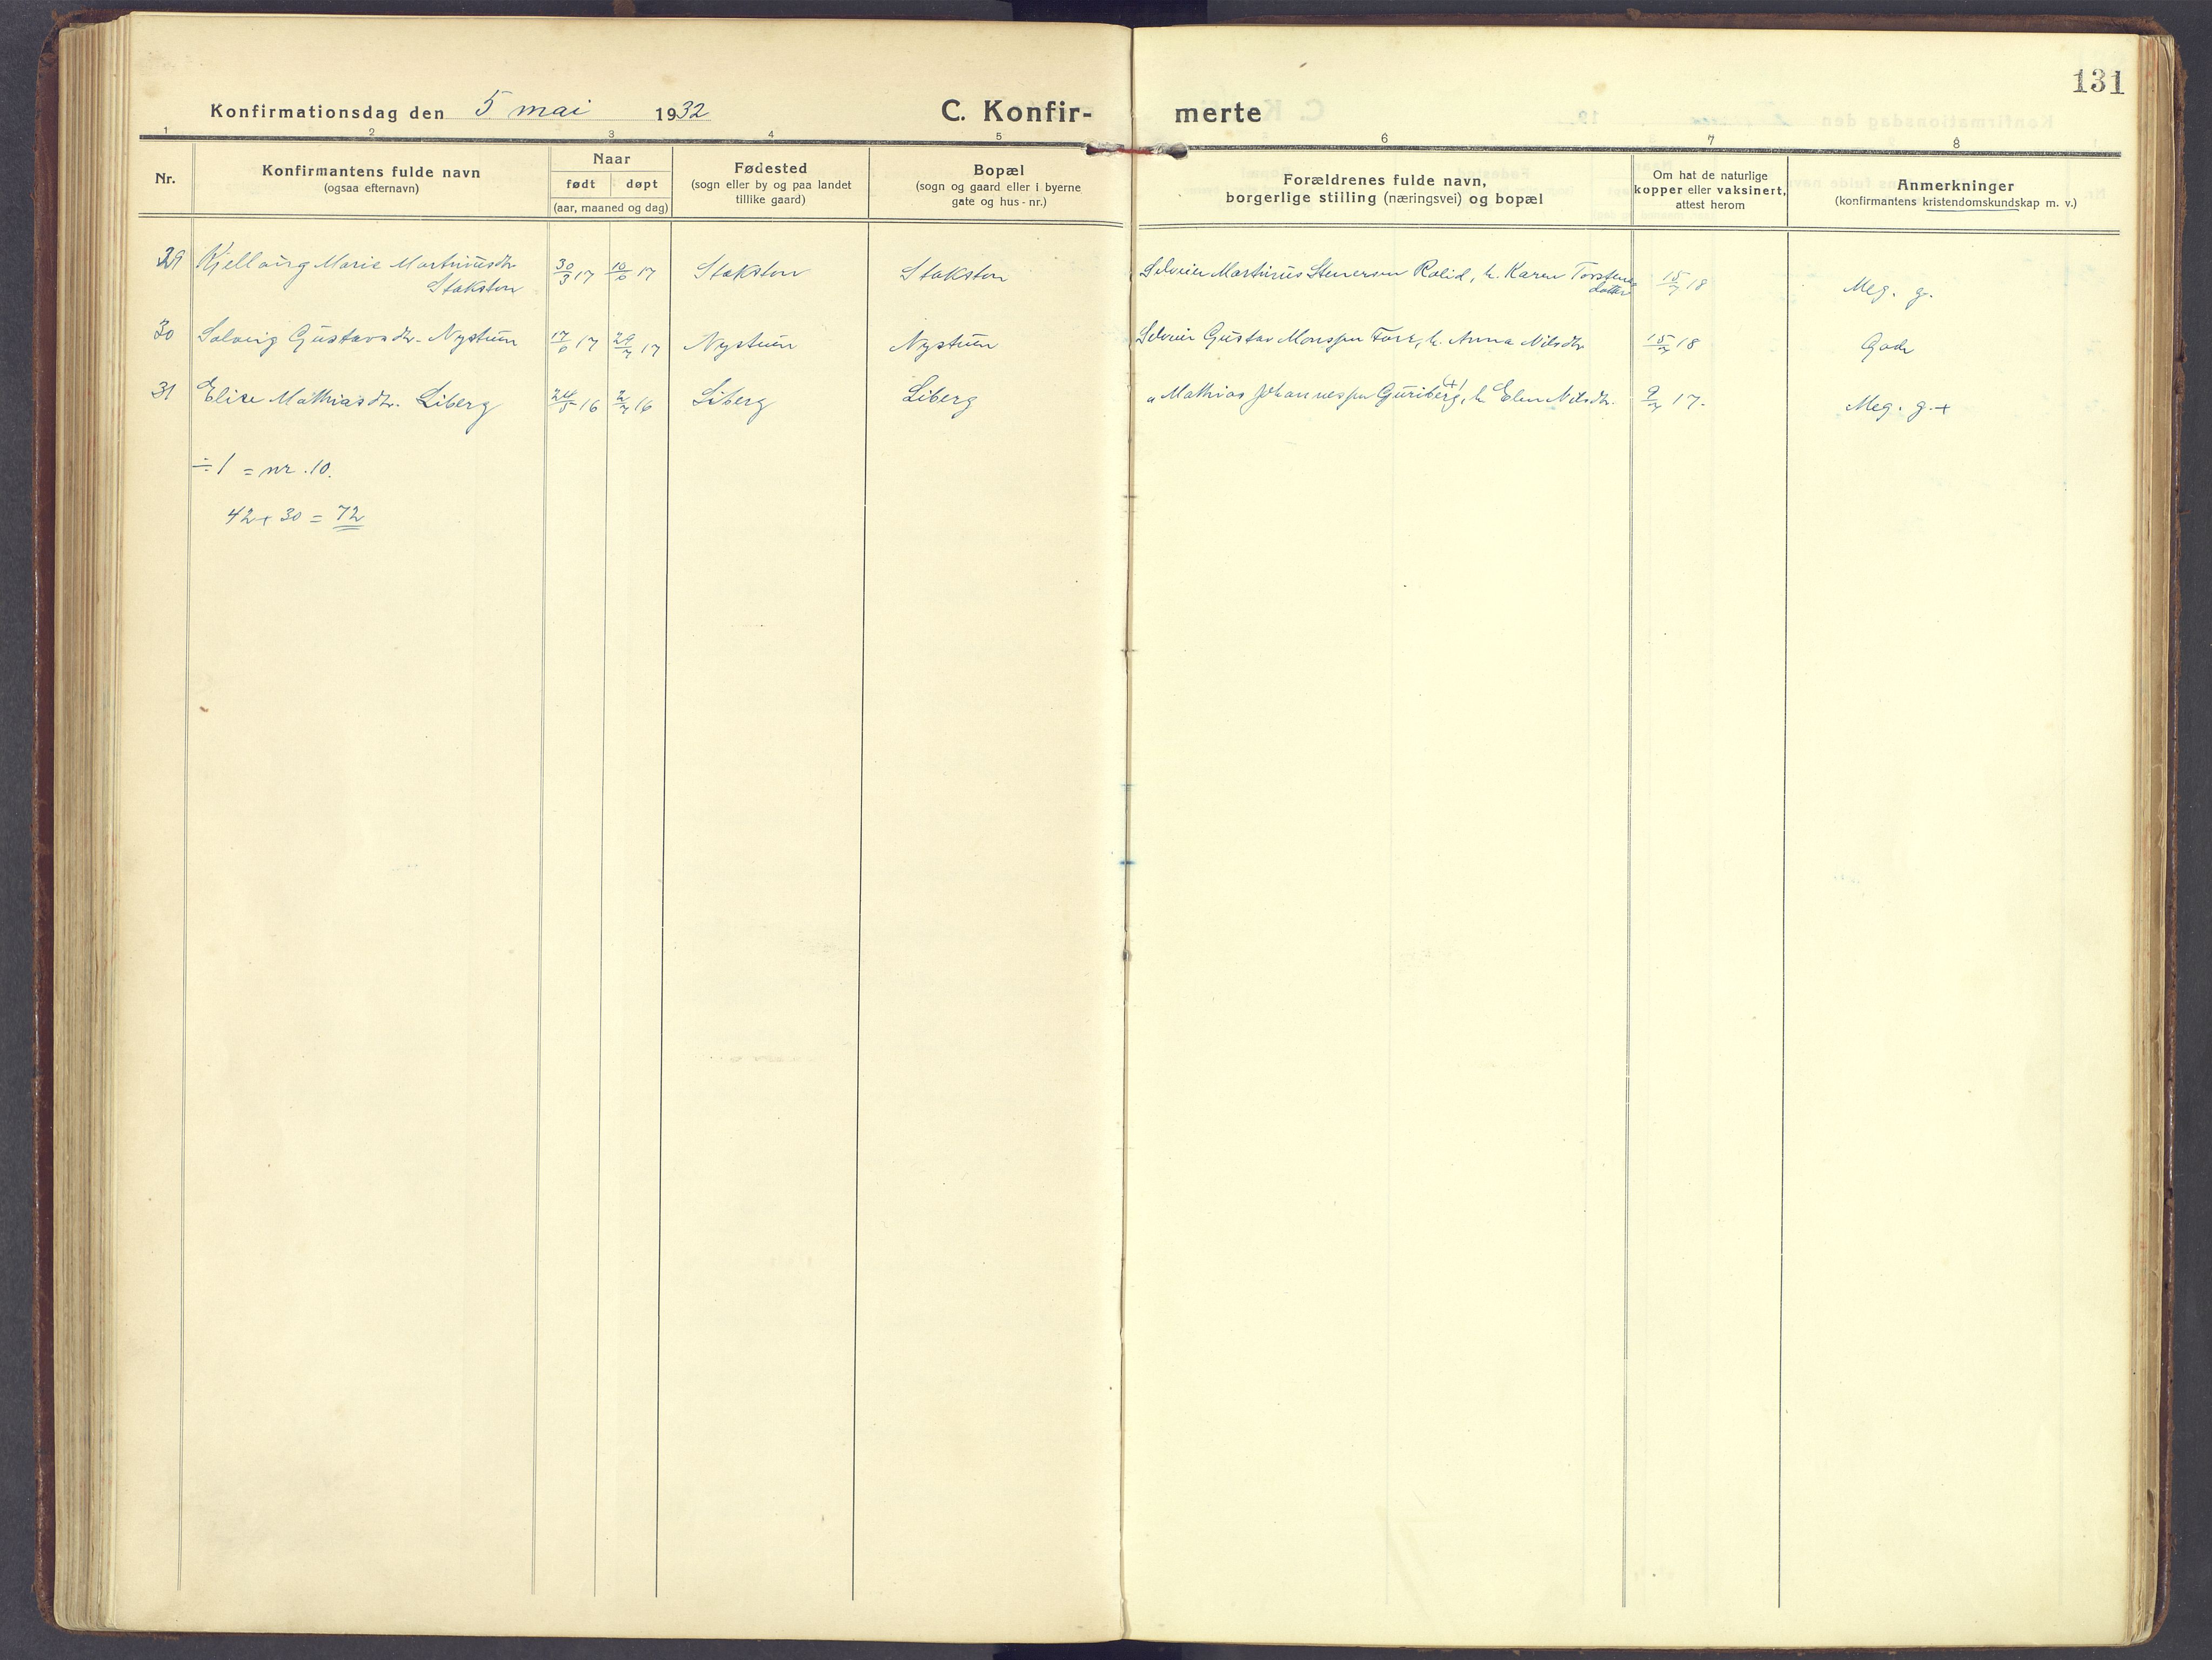 131
Konfirmationsdag den 5 mai 1932
C. Konfir- merte
1 2 3 4 5 6 7 8
Nr.
Konfirmantens fulde navn
(ogsaa efternavn)
Naar
født døpt
(aar, maaned og dag)
Fødested
(sogn eller by og paa landet
tillike gaard)
Bopæl
(sogn og gaard eller i byerne
gate og hus-nr.)
Forældrenes fulde navn,
borgerlige stilling (næringsvei) og bopæl
Om hat de naturlige
kopper eller vaksinert,
attest herom
Anmerkninger
(konfirmantens kristendomskundskap m. v.)
29 Kjellaug Marie Martinusdtr 30/3 17 10/6 17 Stakston Stakston Selveier Martinus Stenersen Rolid, h. Karen Torstens- 15/7 18 Meg. g.
Stakston dotter
30 Solveig Gustavsdtr. Nystuen 17/6 17 29/7 17 Nystuen Nystuen Selveier Gustav Monssen Fore, h. Anna Nilsdtr 15/7 18 Godt
31 Elise Mathiasdtr. Liberg 24/5 16 2/7 16 Liberg Liberg " Mathias Johannessen Guriberg, h. Elen Nilsdtr. 9/7 17. Meg. g.+
÷1 = nr. 10.
42+30 = 72